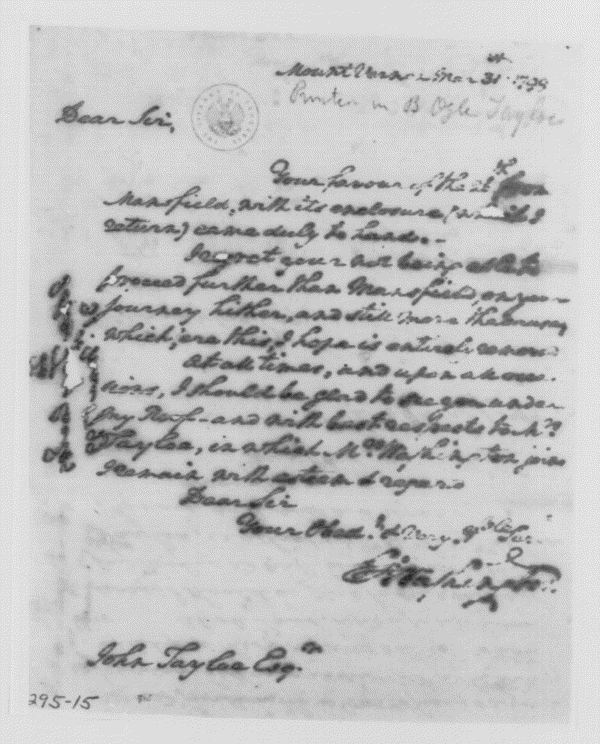 Mount Vernon Mar 31st 1799
Printed in B Ogle Tayloe
Dear Sir,
Your favour of the 26th from
Mansfield, with its enclosure (which I
return) came duly to hand.
I regret your not being able to
proceed further than Mansfield, on your
journey hither, and still more the cause,
which, ere this, I hope is entirely removed
At all times, and upon all occa-
sions, I should be glad to see you under
my Roof—and with best respects to Mrs
Tayloe, in which Mrs Washington joins
I remain with esteem & regard
Dear Sir
Your Obedt & Very Hble Ser
G Washington
John Tayloe Esqr
295-15